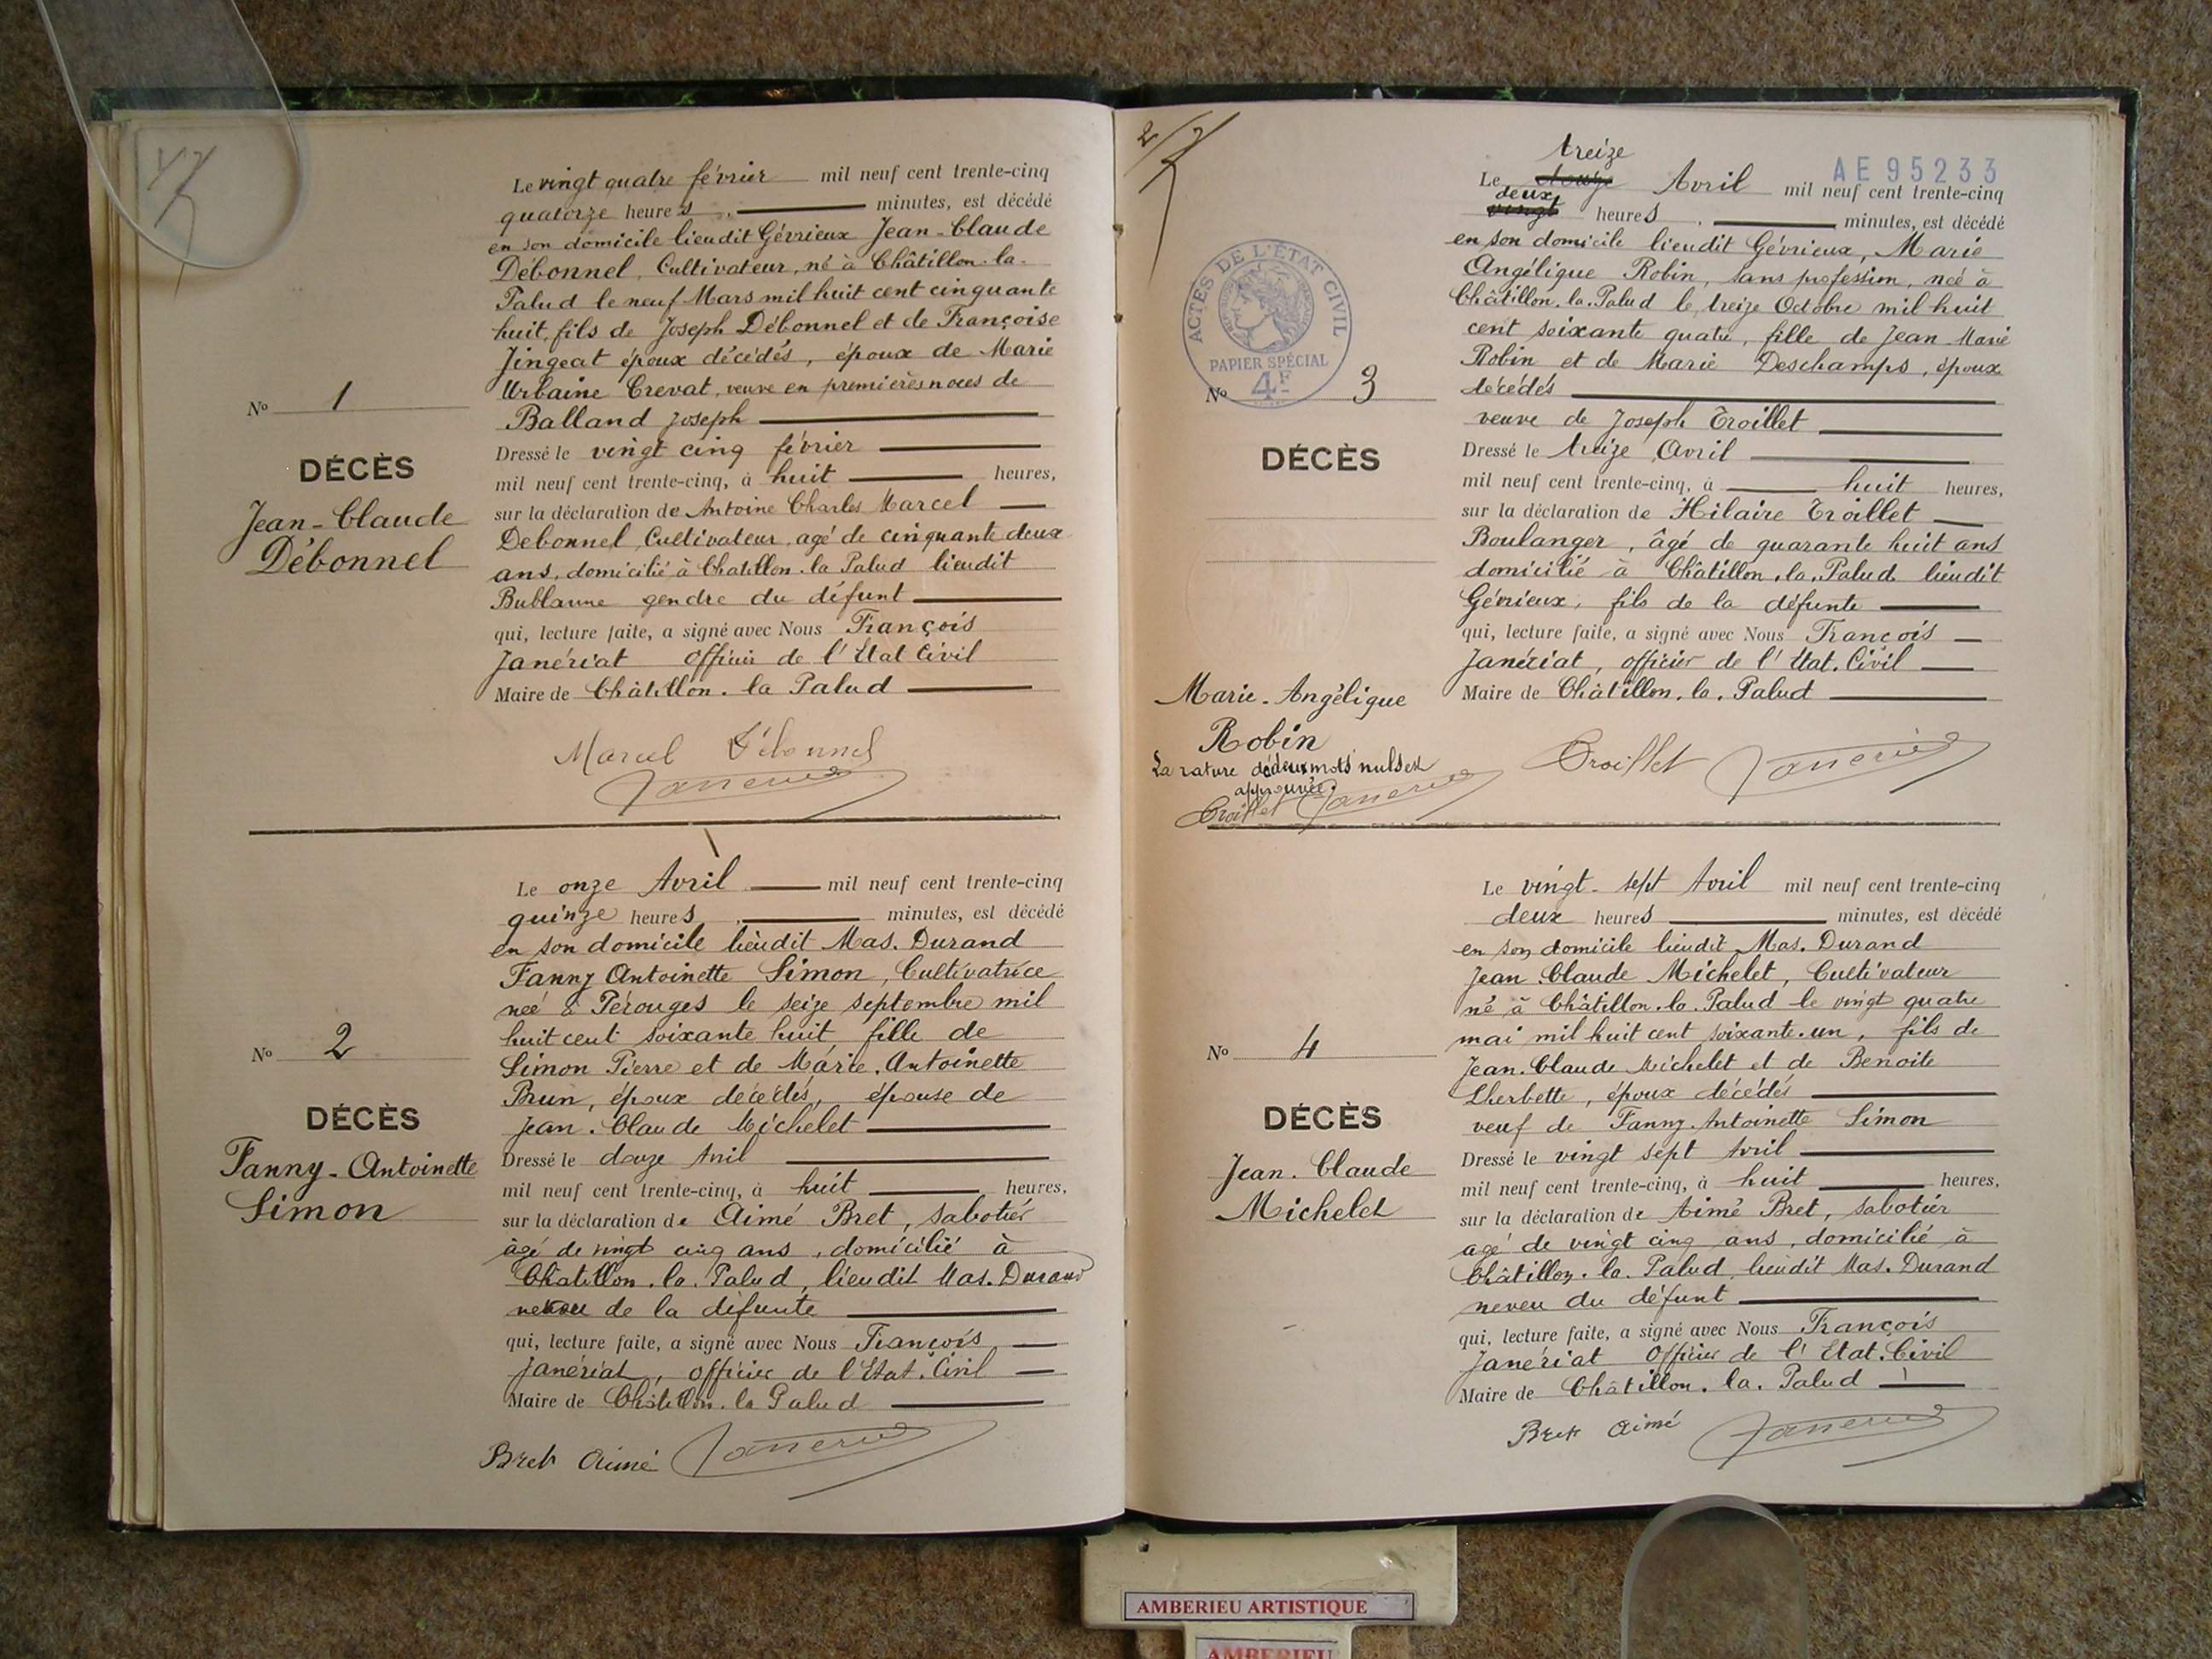 Le vingt quatre février mil neuf cent trente-cinq
quatorze heures minutes, est décédé
en son domicile lieudit Gévrieux Jean-Claude
Débonnel, Cultivateur, né à Châtillon-la-
Palud le neuf Mars mil huit cent cinquante
huit, fils de Joseph Débonnel et de Françoise
Jingeat époux décédés, époux de Marie
Urbaine Crevat, veuve en premières noces de
Balland Joseph
Nº 1
DÉCÈS
Jean-Claude
Débonnel
Dressé le vingt cinq février
mil neuf cent trente-cinq, à huit heures,
sur la déclaration de Antoine Charles Marcel
Debonnel, Cultivateur, agé de cinquante deux
ans, domicilié à Chatillon-la Palud lieudit
Bublanne gendre du défunt
qui, lecture faite, a signé avec Nous François
Janériat officier de l'Etat Civil
Maire de Châtillon-la Palud
Marcel Débonnel
Janeriat
Le onze Avril mil neuf cent trente-cinq
quinze heures minutes, est décédé
en son domicile lieudit Mas. Durand
Fanny Antoinette Simon, Cultivatrice
née à Pérouges le seize septembre mil
huit cent soixante huit, fille de
Simon Pierre et de Marie. Antoinette
Brun, époux décédés, épouse de
Jean. Claude Michelet
Nº 2
DÉCÈS
Fanny-Antoinette
Simon
Dressé le douze Avril
mil neuf cent trente-cinq, à huit heures,
sur la déclaration de Aimé Bret, sabotier
âgé de vingt cinq ans, domicilié à
Châtillon. la. Palud, lieudit Mas. Durand
neveu de la défunte
qui, lecture faite, a signé avec Nous François
Janériat, officier de l'Etat. Civil
Maire de Châtillon. la Palud
Bret Aimé Janeriat
2/7
AE95233
treize
Le douze Avril mil neuf cent trente-cinq
deux
vingt heures minutes, est décédé
en son domicile lieudit Gévrieux, Marie
Angélique Robin, sans profession, née à
Châtillon. la. Palud le treize Octobre mil huit
cent soixante quatre, fille de Jean Marie
Robin et de Marie Deschamps, époux
décédés
veuve de Joseph Troillet
ACTES DE L'ÉTAT CIVIL
PAPIER SPÉCIAL
4F
Nº 3
DÉCÈS
Marie-Angélique
Robin
La rature de deux mots nuls est
approuvée.
Troillet Janeriat
Dressé le treize Avril
mil neuf cent trente-cinq, à huit heures,
sur la déclaration de Hilaire Troillet
Boulanger, âgé de quarante huit ans
domicilié à Châtillon. la. Palud lieudit
Gévrieux, fils de la défunte
qui, lecture faite, a signé avec Nous François
Janériat, officier de l'Etat. Civil
Maire de Châtillon. la. Palud
Troillet Janeriat
Le vingt-sept Avril mil neuf cent trente-cinq
deux heures minutes, est décédé
en son domicile lieudit Mas. Durand
Jean Claude Michelet, Cultivateur
né à Châtillon. la. Palud le vingt quatre
mai mil huit cent soixante. un, fils de
Jean. Claude Michelet et de Benoite
Lherbette, époux décédés
veuf de Fanny. Antoinette Simon
Nº 4
DÉCÈS
Jean. Claude
Michelet
Dressé le vingt sept Avril
mil neuf cent trente-cinq, à huit heures,
sur la déclaration de Aimé Bret, sabotier
agé de vingt cinq ans, domicilié à
Châtillon. la. Palud, lieudit Mas. Durand
neveu du défunt
qui, lecture faite, a signé avec Nous François
Janériat Officier de l'Etat. Civil
Maire de Châtillon. la. Palud
Bret Aimé Janeriat
AMBERIEU ARTISTIQUE
AMBERIEU